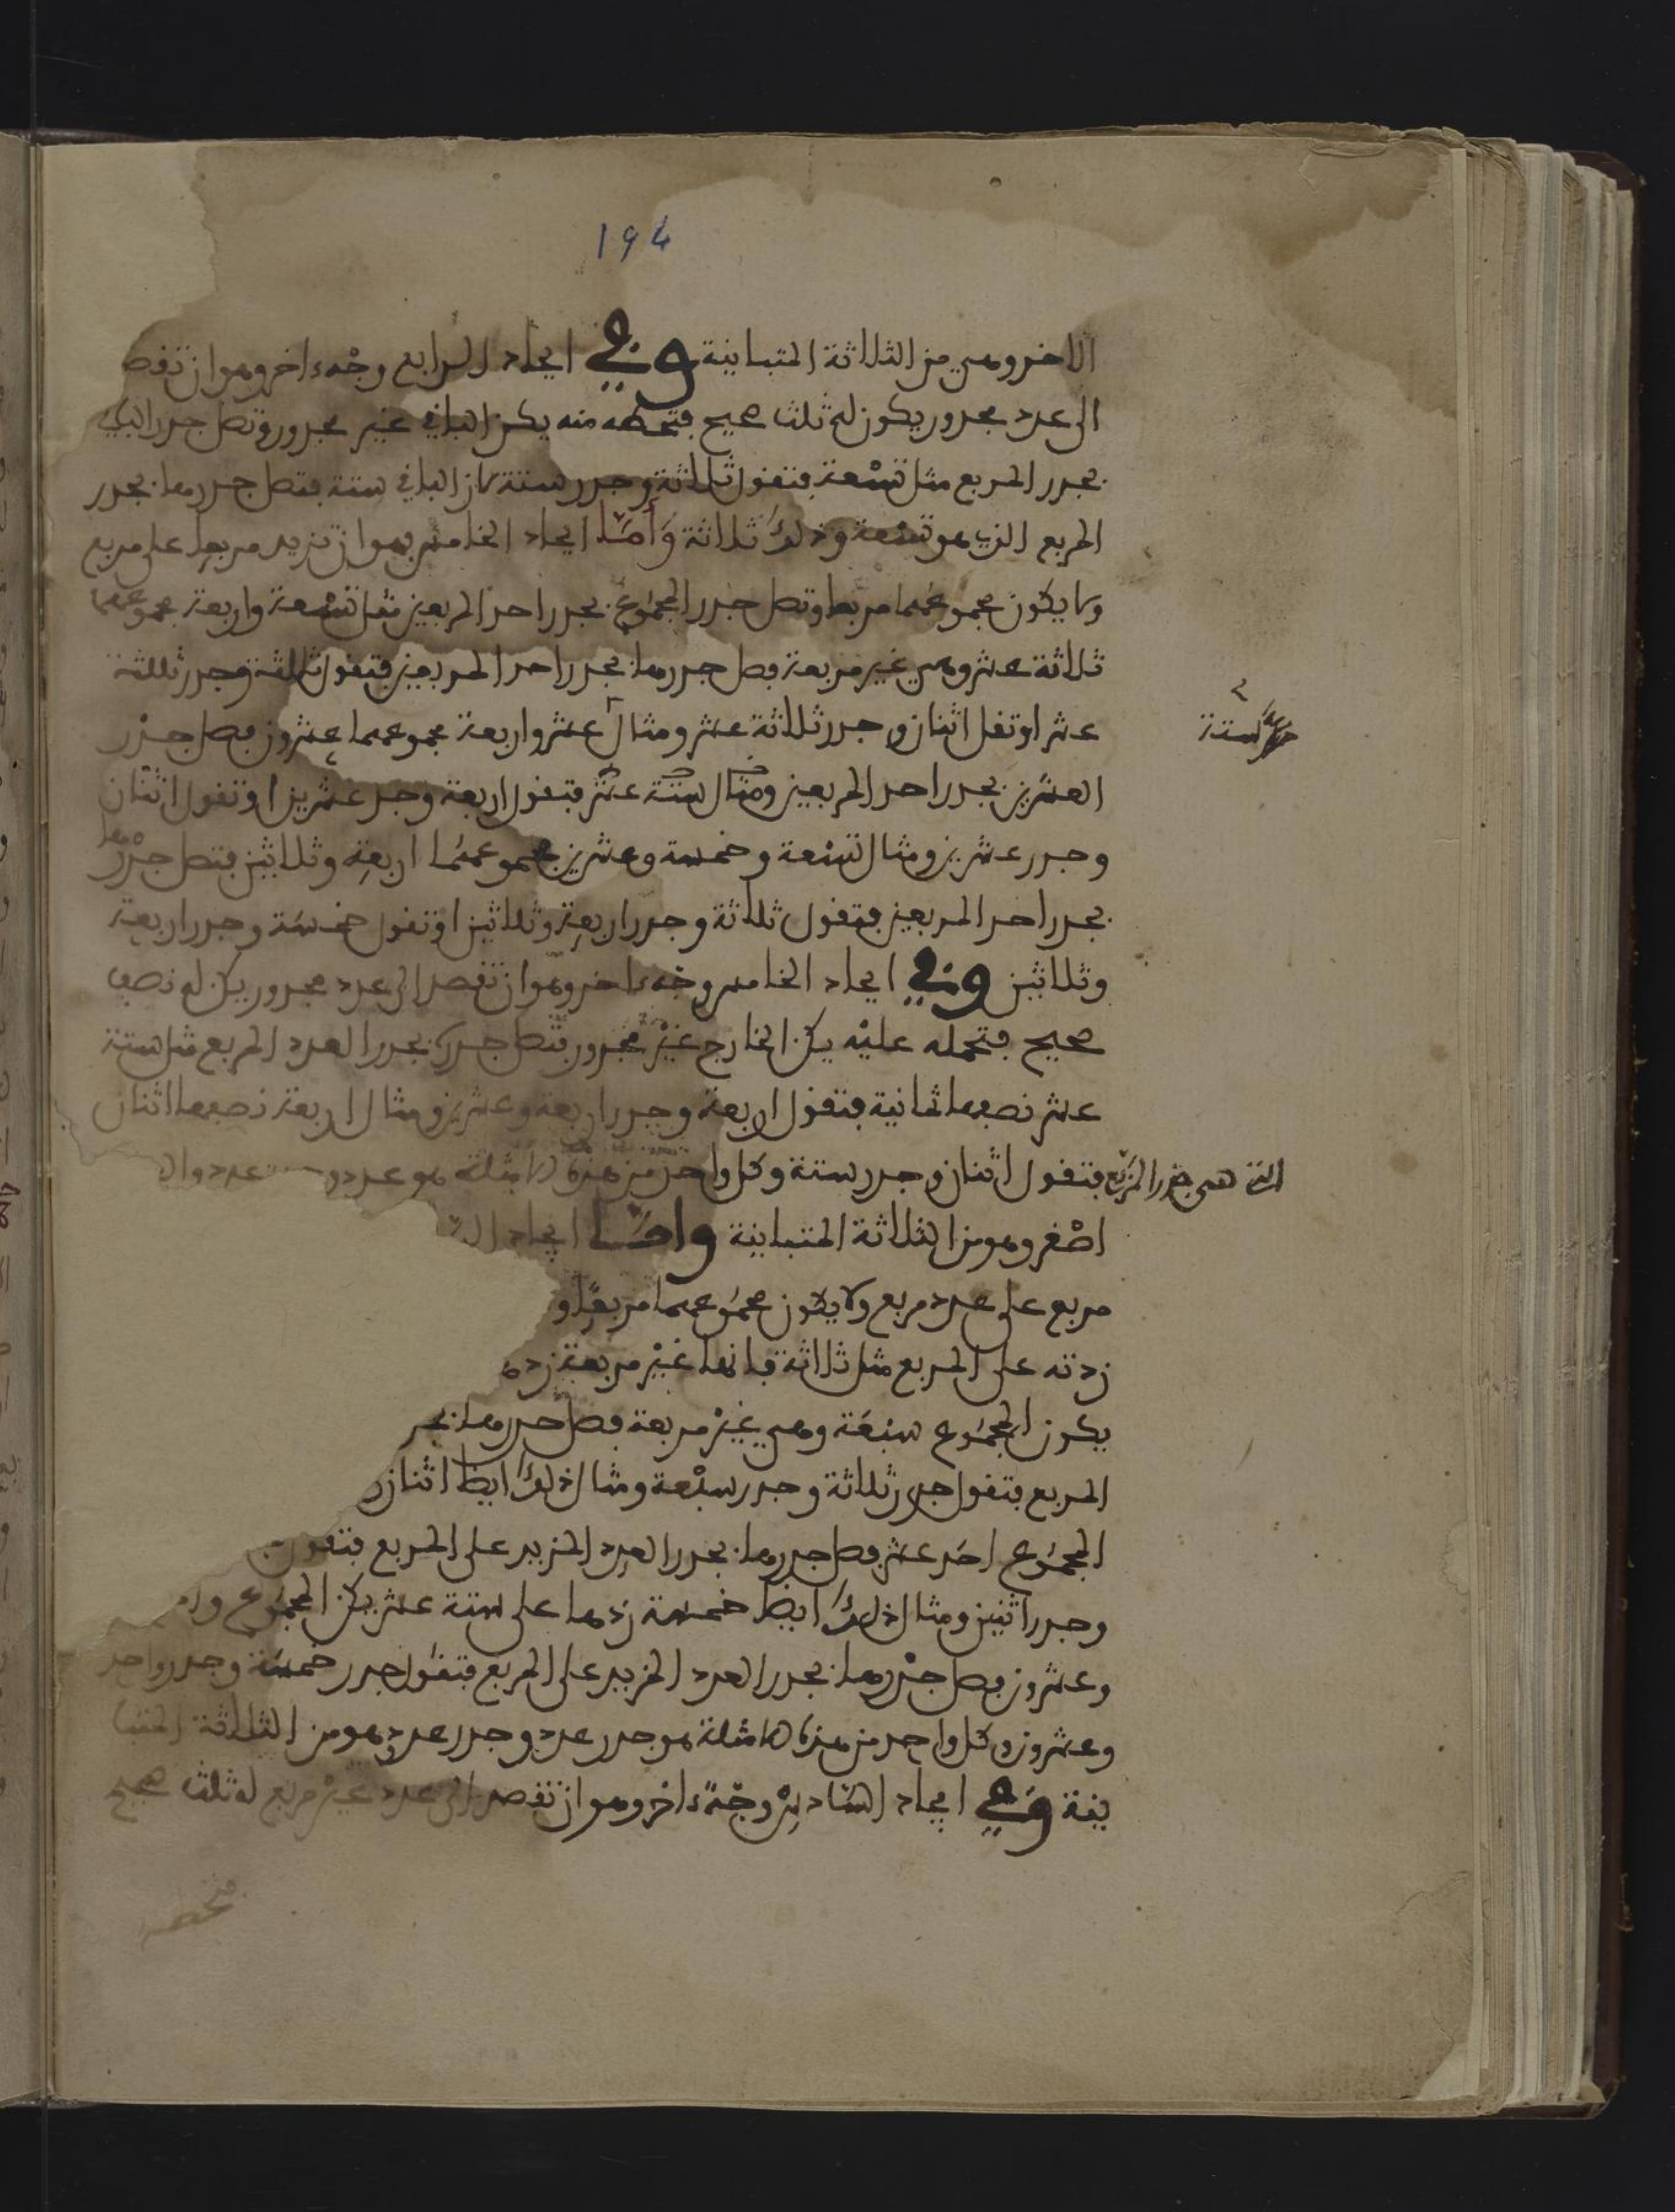 194
الاخر وهي من الثلاثة المتباينة وفي ايجاد الرابع وجه اخر وهو ان تقصد
الى عدد مجدور يكون له ثلث صحيح فتحطه منه يكن الباقي غير مجدور وتصل جدر الباقي
بجدر المربع مثل تسعة فتقول ثلاثة وجدر ستة لان الباقي ستة فتصل جدرها بجدر
المربع الذي هو تسعة وذلك ثلاثة وأمّا ايجاد الخامس فهو ان تزيد مربعا على مربع
ولا يكون مجموعهما مربعا وتصل جدر المجموع بجدر احد المربعين مثل تسعة واربعة مجموعهما
ثلاثة عشر وهي غير مربعة فصل جدرها بجدر احد المربعين فتقول ثلاثة وجدر ثلثة
عشر او تقل اثنان وجدر ثلاثة عشر ومثال ستة عشر واربعة مجموعهما عشرون فصل جدر
العشرين بجدر احد المربعين ومثال ستة عشر فتقول اربعة وجدر عشرين او تقول اثنان
وجدر عشرين ومثال تسعة وخمسة وعشرين مجموعهما اربعة وثلاثين فتصل جدرها
بجدر احد المربعين فتقول ثلاثة وجدر اربعة وثلاثين او تقول خمسة وجدر اربعة
وثلاثين وفي ايجاد الخامس وجه اخر وهو ان تقصد الى عدد مجدور يكن له نصف
صحيح فتحمله عليه يكن الخارج غير مجدور فتصل جدره بجدر العدد المربع مثل ستة
عشر نصفها ثمانية فتقول اربعة وجدر اربعة وعشرين ومثال اربعة نصفها اثنان
التي هي جدر المربع فتقول اثنان وجدر ستة وكل واحد من هذه الامثلة هو عدد وجدر عدد وال
اصغر وهو من الثلاثة المتباينة واما ايجاد ال
مربع على عدد مربع ولا يكون مجموعهما مربعا و
زدته على المربع مثل ثلاثة فانها غير مربعة زدها
يكون المجموع سبعة وهي غير مربعة فصل جدرها بجد
المربع فتقول جدر ثلاثة وجدر سبعة ومثال ذلك ايضا اثنان
المجموع احد عشر فصل جدرها بجدر العدد المزيد على المربع فتقول
وجدر اثنين ومثال ذلك ايضا خمسة زدها على ستة عشر يكن المجموع واحد
وعشرون فصل جدرها بجدر العدد المزيد على المربع فتقول جدر خمسة وجدر واحد
وعشرون وكل واحد من هذه الامثلة هو جدر عدد وجدر عدد وهو من الثلاثة المتبا
ينة وفي ايجاد السادس وجه اخر وهو ان تقصد الى عدد غير مربع له ثلث صحيح
ستة